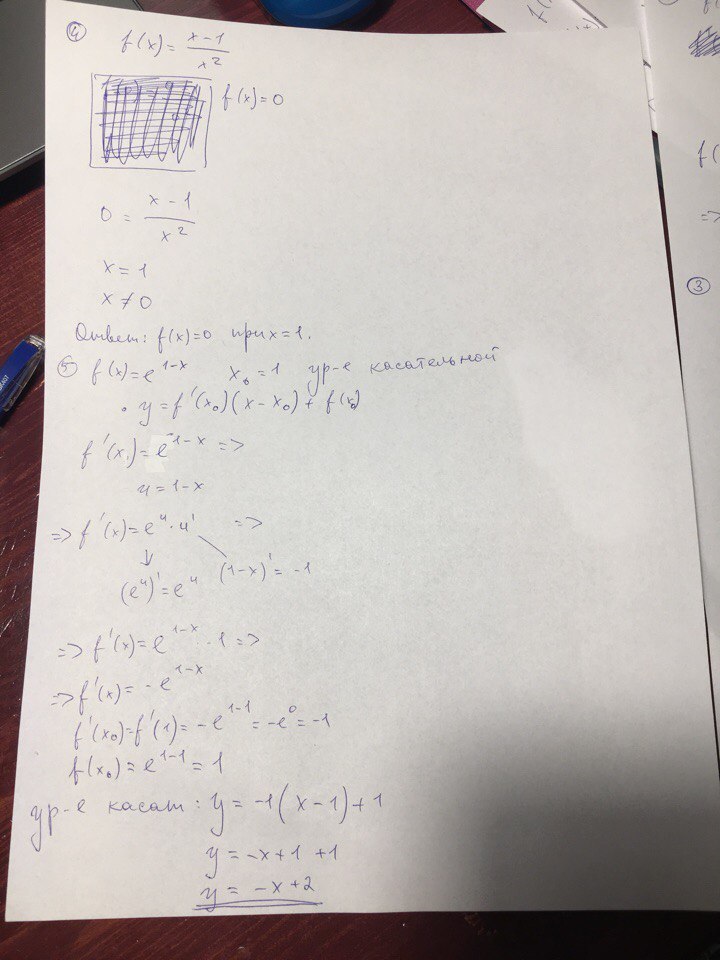 ④ f(x) = (x-1)/x²
f(x) = 0
0 = (x-1)/x²
x = 1
x ≠ 0
Ответ: f(x)=0 при x=1.
⑤ f(x) = e^(1-x) x₀ = 1 ур-е касательной
• y = f'(x₀)(x-x₀) + f(x₀)
f'(x) = e^(1-x) =>
u = 1-x
=> f'(x) = e^u · u' =>
(e^u)' = e^u (1-x)' = -1
=> f'(x) = e^(1-x) · -1 =>
=> f'(x) = -e^(1-x)
f'(x₀) = f'(1) = -e^(1-1) = -e^0 = -1
f(x₀) = e^(1-1) = 1
ур-е касат: y = -1(x-1)+1
y = -x+1+1
y = -x+2
f(
f(
=>
③